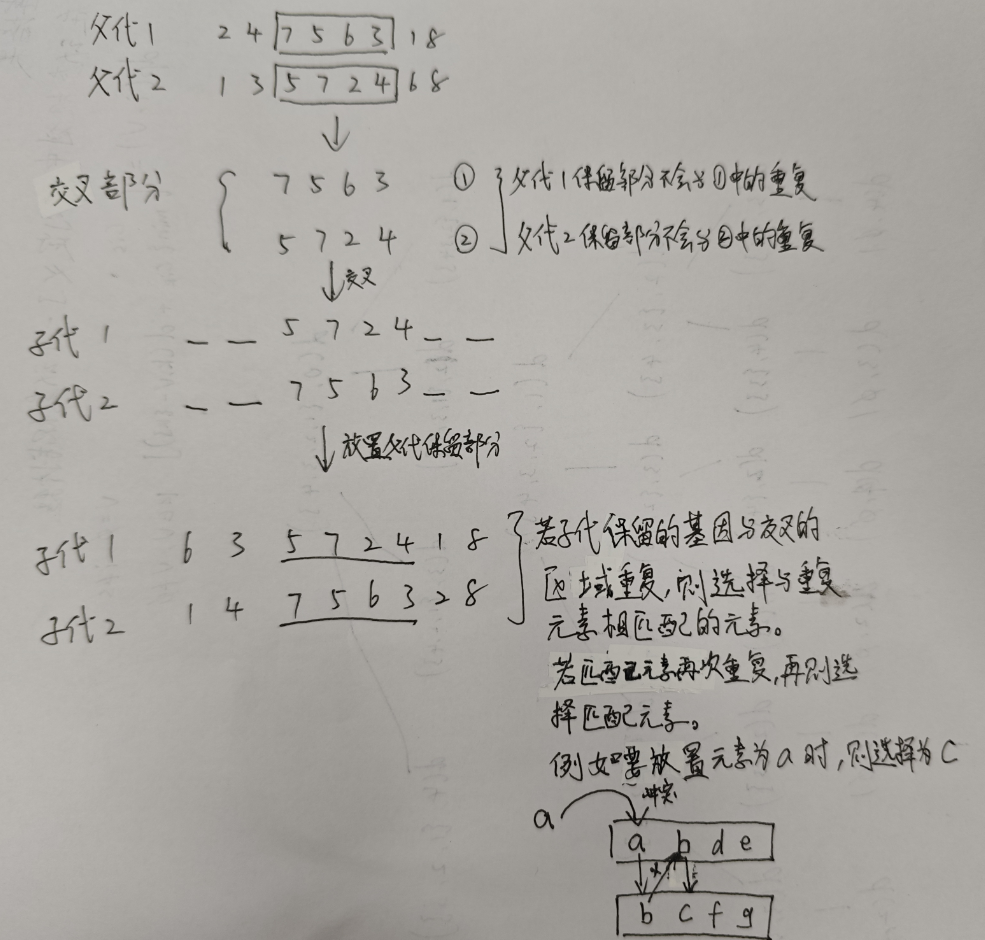 父代1 2 4 7 5 6 3 1 8
父代2 1 3 5 7 2 4 6 8
交叉部分 7 5 6 3 ① 父代1保留部分不会与①中的重复
5 7 2 4 ② 父代2保留部分不会与②中的重复
交叉
子代1 — — 5 7 2 4 — —
子代2 — — 7 5 6 3 — —
放置父代保留部分
子代1 6 3 5 7 2 4 1 8
子代2 1 4 7 5 6 3 2 8
若子代保留的基因与交叉的
区域重复,则选择与重复
元素相匹配的元素。
若匹配元素再次重复,再则选
择匹配元素。
例如要放置元素为a时,则选择为c
冲突
a
a b d e
b c f g